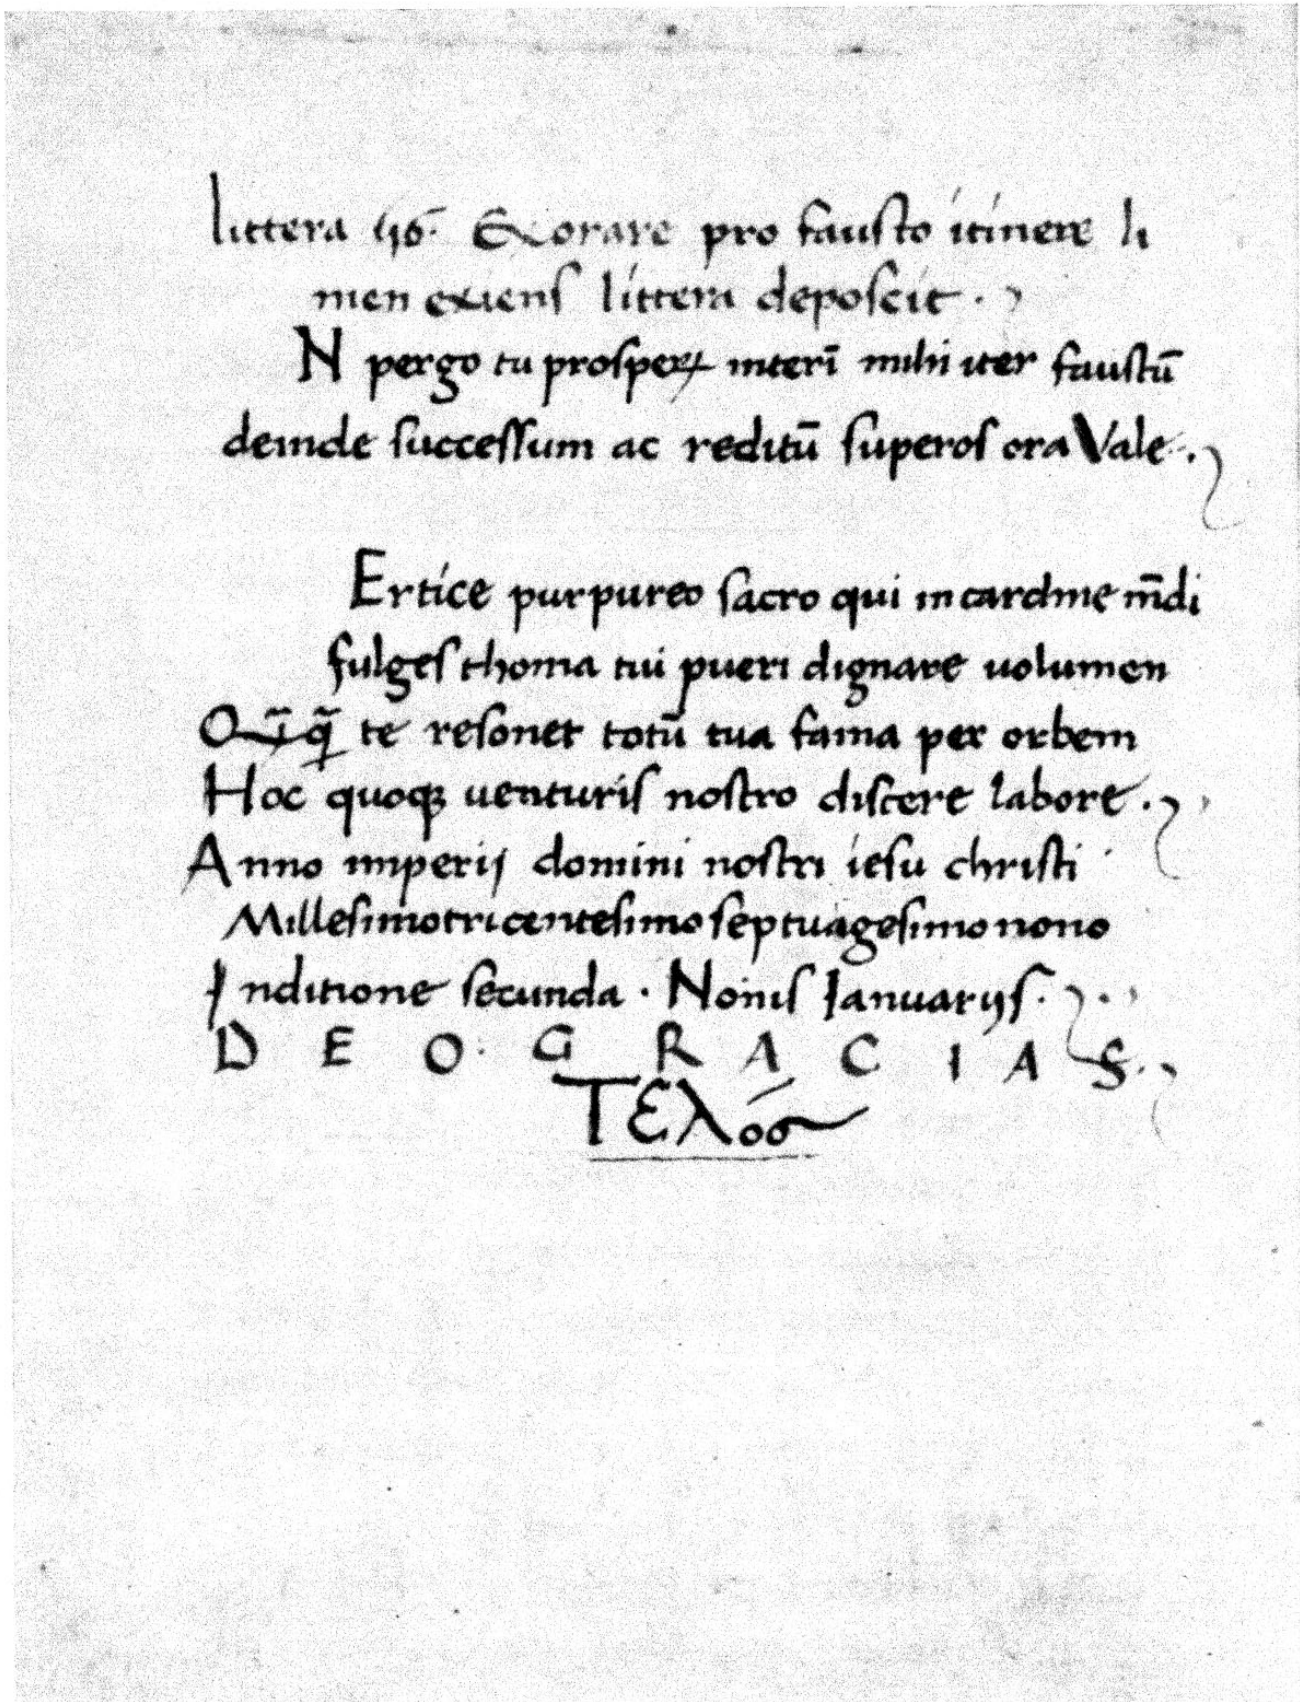 littera 4γ6. Exorare pro fausto itinere li
men exiens littera deposcit.
N pergo tu prosper interī mihi iter faustū
deinde successum ac reditū superos ora Vale.
Ertice purpureo sacro qui in cardine mūdi
fulges thoma tui pueri dignare uolumen
Qūq̄ te resonet totū tua fama per orbem
Hoc quoqꝫ uenturis nostro discere labore.
Anno imperij domini nostri iesu christi
Millesimotricentesimo septuagesimo nono
Inditione secunda. Nonis Ianuarijs.
DEO. GRACIAS.
Τελός